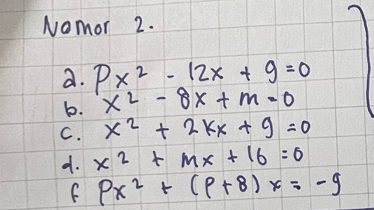 Nomor 2.
a. Px² - 12x + 9 = 0
b. x² - 8x + m = 0
c. x² + 2kx + 9 = 0
d. x² + mx + 16 = 0
f Px² + (P+8) x = -9